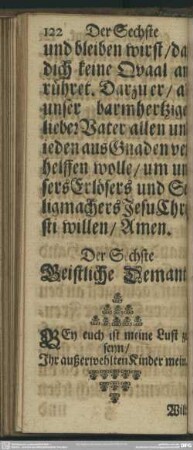 122 Der Sechste
und bleiben wirst/da
dich keine Qvaal an
rühret. Darzu er/ a
unser barmhertzige
lieber Vater allen un
ieden aus Gnaden ve
helffen wolle/ um un
sers Erlösers und Se
ligmachers Jesu Chri
sti willen/ Amen.
Der Sechste
Geistliche Demant
BEy euch ist meine Lust z
seyn/
Ihr außerwehlten Kinder mein